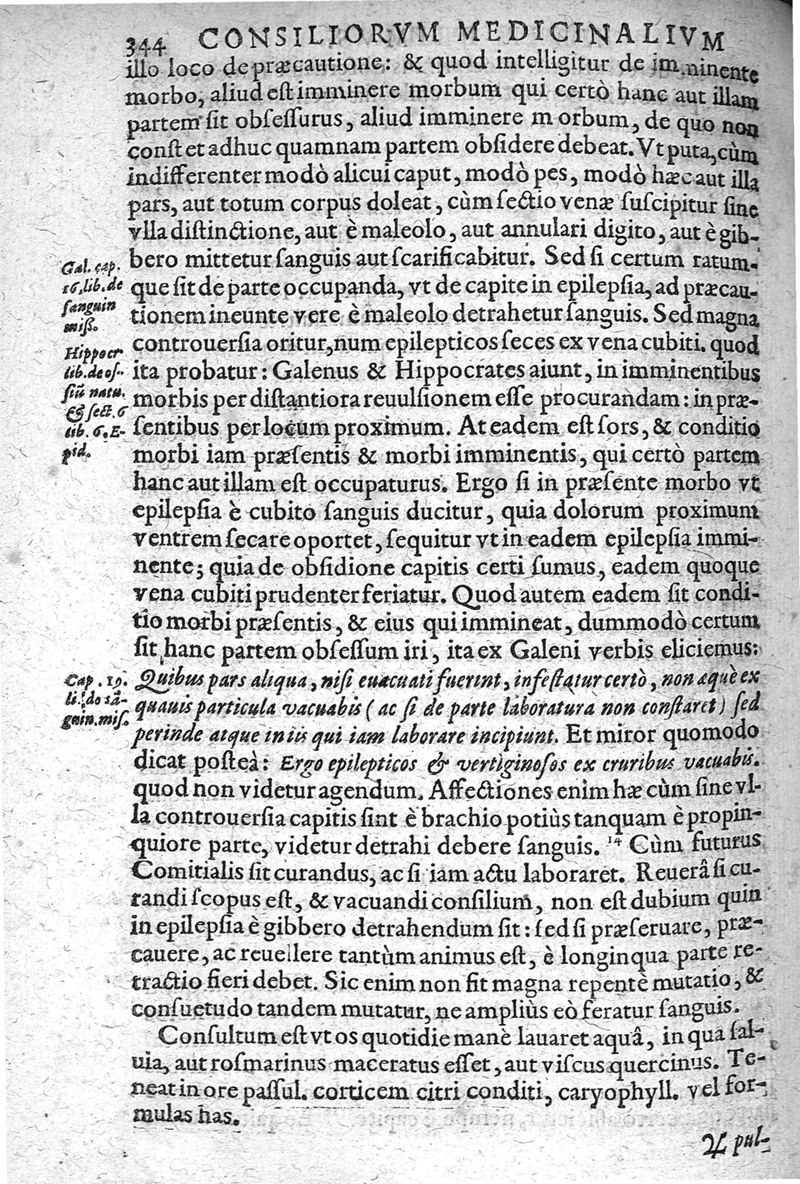 344 CONSILIORVM MEDICINALIVM
illo loco de præcautione: & quod intelligitur de imminente
morbo, aliud est imminere morbum qui certò hanc aut illam
partem sit obsessurus, aliud imminere morbum, de quo non
constet adhuc quamnam partem obsidere debeat. Vt puta, cùm
indifferenter modò alicui caput, modò pes, modò hæc aut illa
pars, aut totum corpus doleat, cùm sectio venæ suscipitur sine
vlla distinctione, aut è maleolo, aut annulari digito, aut è gib-
bero mittetur sanguis aut scarificabitur. Sed si certum ratum-
que sit de parte occupanda, vt de capite in epilepsia, ad præcau-
tionem ineunte vere è maleolo detrahetur sanguis. Sed magna
controuersia oritur, num epilepticos seces ex vena cubiti. quod
ita probatur: Galenus & Hippocrates aiunt, in imminentibus
morbis per distantiora reuulsionem esse procurandam: in præ-
sentibus per locum proximum. At eadem est sors, & conditio
morbi iam præsentis & morbi imminentis, qui certò partem
hanc aut illam est occupaturus. Ergo si in præsente morbo vt
epilepsia è cubito sanguis ducitur, quia dolorum proximum
ventrem secare oportet, sequitur vt in eadem epilepsia immi-
nente; quia de obsidione capitis certi sumus, eadem quoque
vena cubiti prudenter feriatur. Quod autem eadem sit condi-
tio morbi præsentis, & eius qui immineat, dummodò certum
sit hanc partem obsessum iri, ita ex Galeni verbis eliciemus:
Quibus pars aliqua, nisi euacuati fuerint, infestatur certò, non æquè ex
quauis particula vacuabis (ac si de parte laboratura non constaret) sed
perinde atque in iis qui iam laborare incipiunt. Et miror quomodo
dicat posteà: Ergo epilepticos & vertiginosos ex cruribus vacuabis.
quod non videtur agendum. Affectiones enim hæ cùm sine vl-
la controuersia capitis sint è brachio potiùs tanquam è propin-
quiore parte, videtur detrahi debere sanguis. 14 Cùm futurus
Comitialis sit curandus, ac si iam actu laboraret. Reuerâ si cu-
randi scopus est, & vacuandi consilium, non est dubium quin
in epilepsia è gibbero detrahendum sit: sed si præseruare, præ-
cauere, ac reuellere tantùm animus est, è longinqua parte re-
tractio fieri debet. Sic enim non fit magna repentè mutatio, &
consuetudo tandem mutatur, ne ampliùs eò feratur sanguis.
Consultum est vt os quotidie manè lauaret aquâ, in qua sal-
uia, aut rosmarinus maceratus esset, aut viscus quercinus. Te-
neat in ore passul. corticem citri conditi, caryophyll. vel for-
mulas has.
♃ pul-
Gal. cap.
16. lib. de
sanguin
miss.
Hippocr
lib. de os-
siū natu.
& sect. 6
lib. 6. E-
pid.
Cap. 19.
li. de sā-
guin. mis.